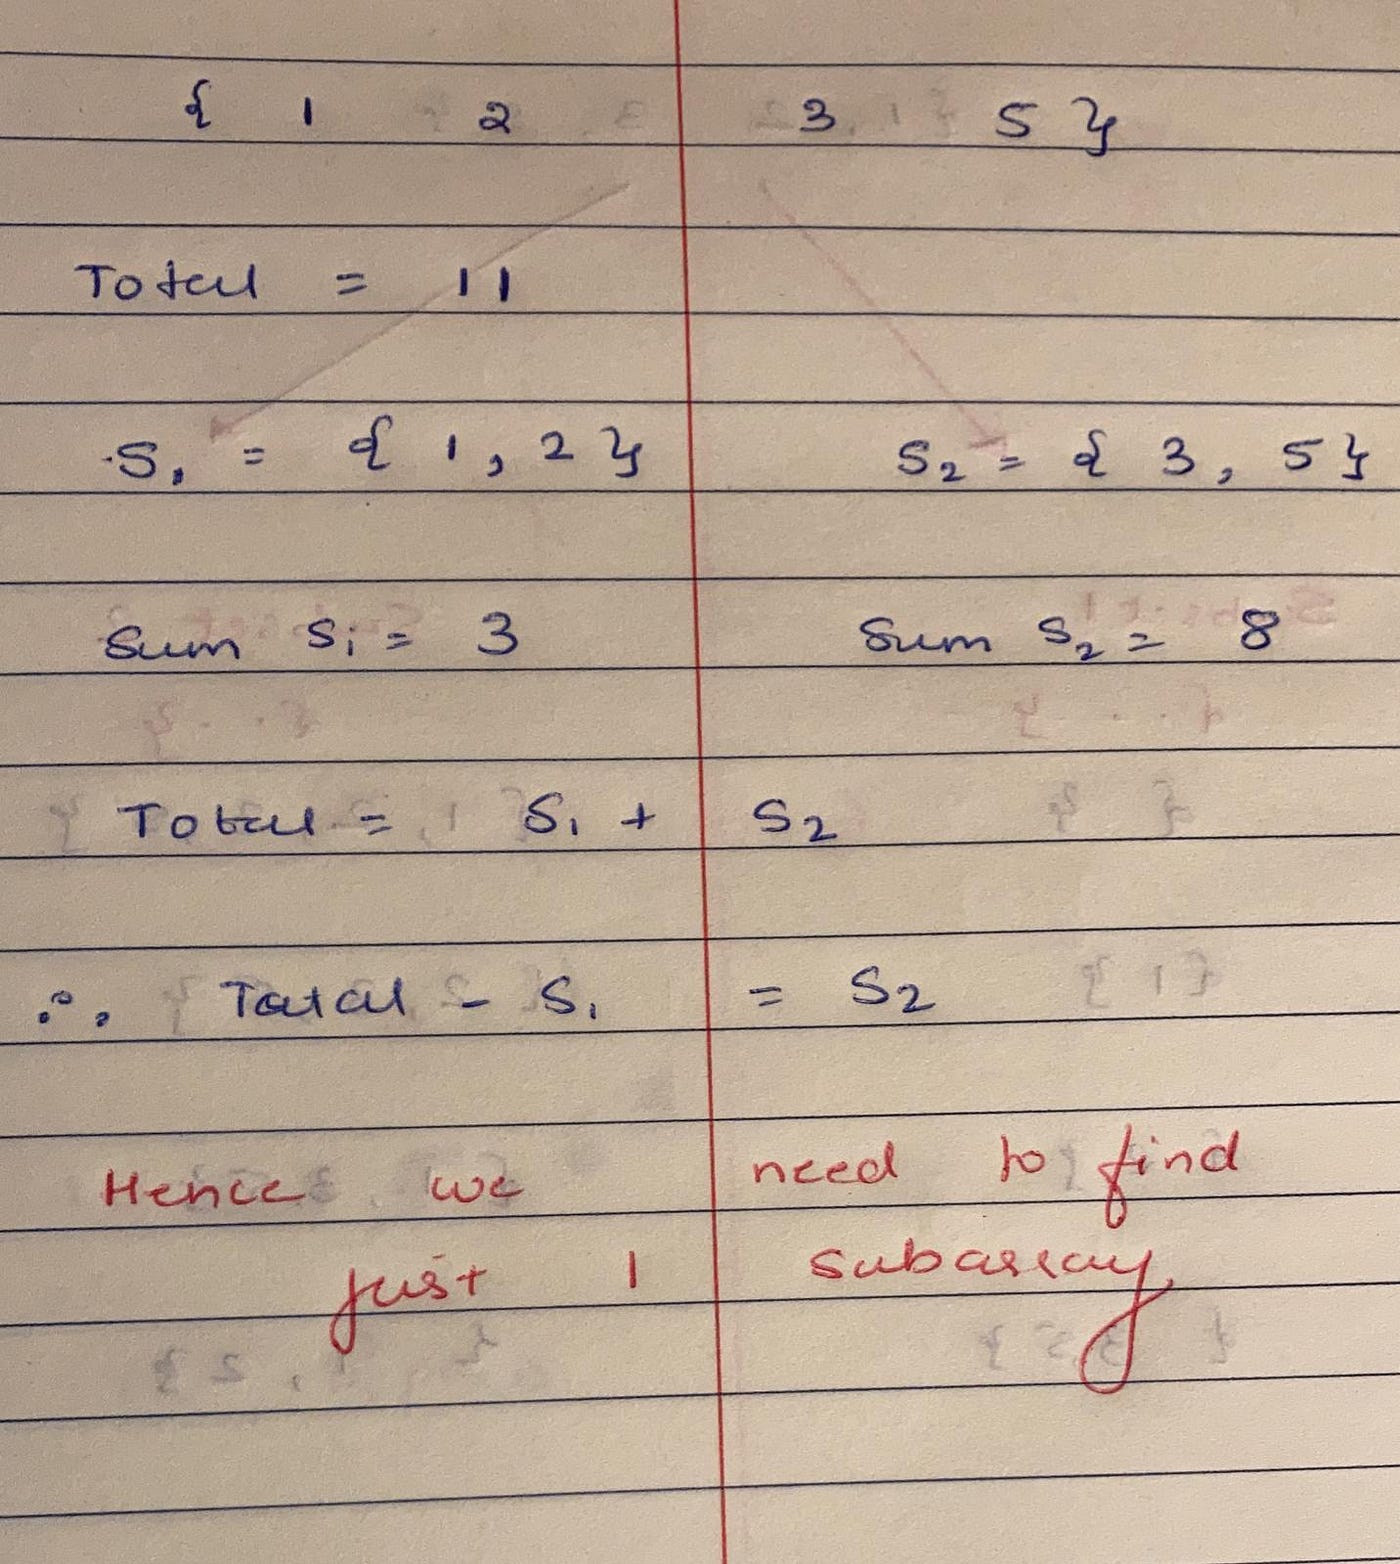 { 1 2 3 5 }
Total = 11
S1 = { 1, 2 } S2 = { 3, 5 }
Sum S1 = 3 Sum S2 = 8
Total = S1 + S2
∴ Total - S1 = S2
Hence we need to find
just 1 subarray